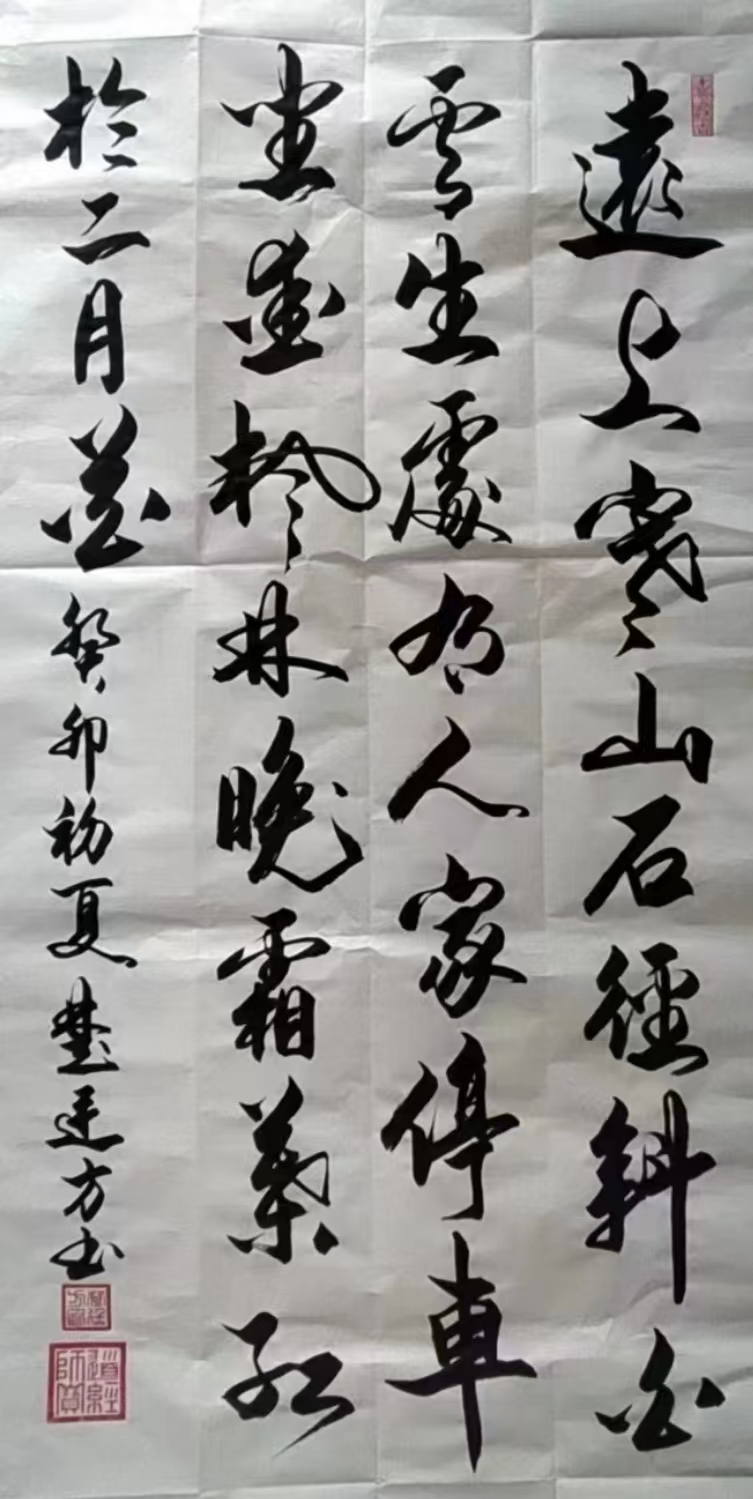 遠上寒山石徑斜白
雲生處有人家停車
坐愛楓林晚霜葉紅
於二月花癸卯初夏楚廷方书
道經師寶